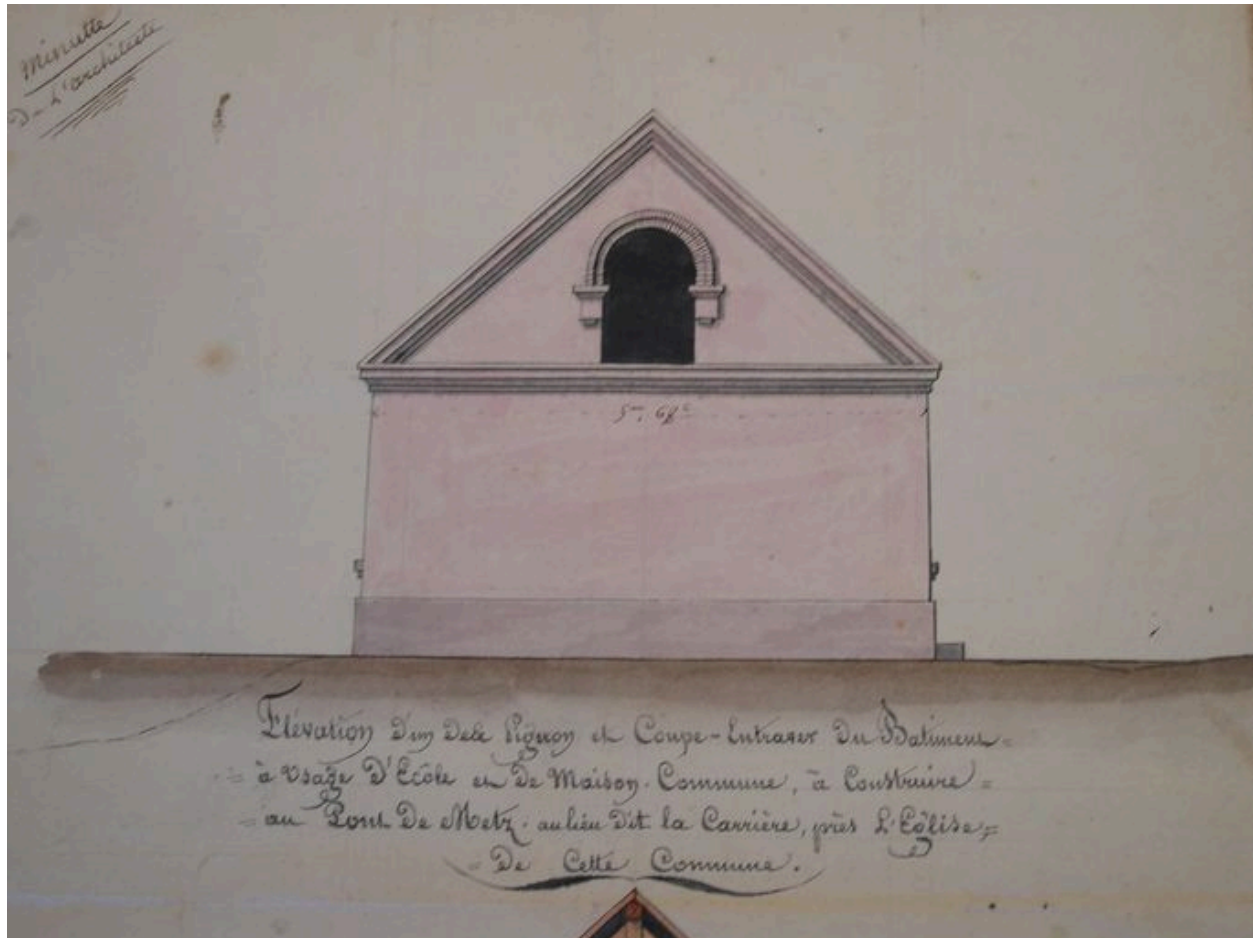 Minutte
De L'architecte
5m. 68c
Elévation D'un Pignon et Coupe-Entraver Du Batiment=
= à Usage D'Ecôle et De Maison-Commune, à Construire =
= au Pont De Metz. au lieu Dit la Carrière, près L'Eglise=
= De Cette Commune.